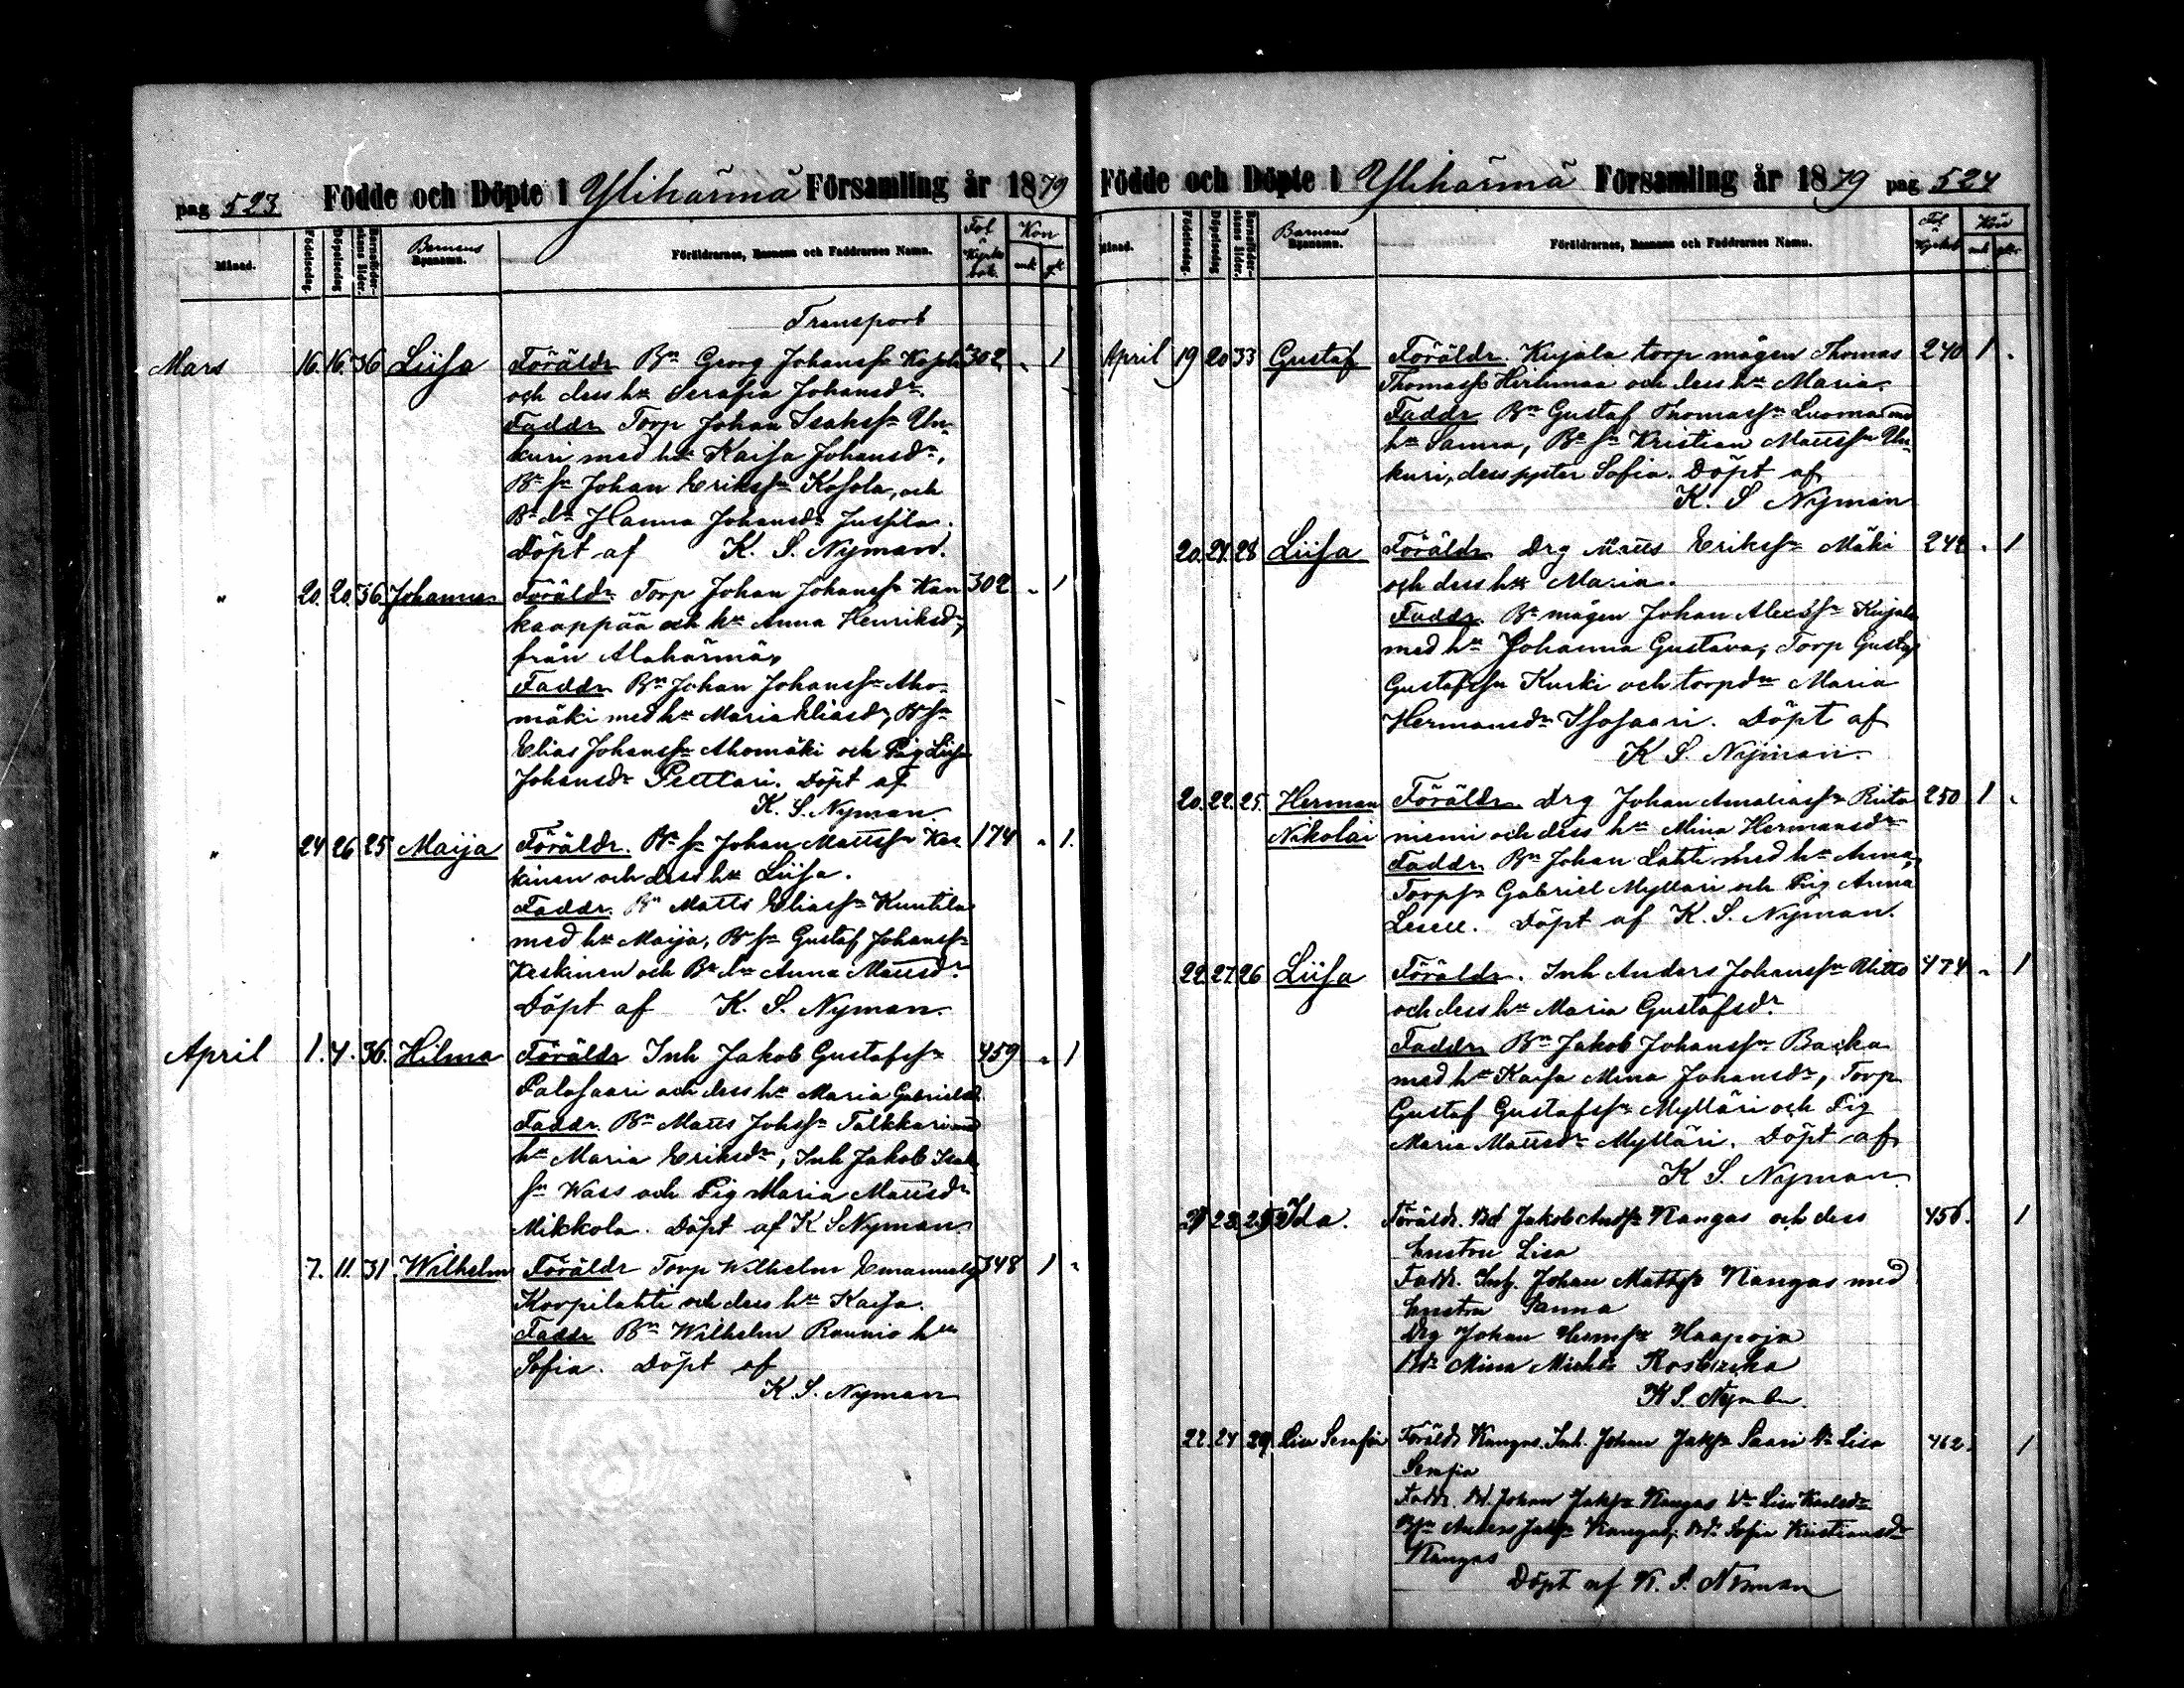 pag 523 Födde och Döpte i Ylihärmä Församling år 1879
Månad. Födelsedag. Döpelsedag Barnens Föräldrarnes, Barnens och Faddrarnes Namn. Fol. i Kyrkobok. Kön mk qk
Transport
Mars 16. 16. 36 Liisa Föräldr Bn Georg Johanssn 302 " 1
och dess hu Serafia Johansdr.
Faddr Torp Johan Isakssn Un-
kuri med hu Kaisa Johansdr,
Bn sn Johan Erikssn Kosola, och
Bn dr Hanna Johansdr Jussila.
Döpt af K. S. Nyman.
" 20. 20. 36. Johanna Föräldr Torp Johan Johanssn Kan 302 " 1
kaanpää och hu Anna Henriksdr,
från Alahärmä,
Faddr. Bn Johan Johanssn Aho-
mäki med hu Maria Eliasdr, Bn sn
Elias Johanssn Ahomäki och Pig Liisa
Johansdr Pelttari. Döpt af
K. S. Nyman.
" 24 26 25. Maija Föräldr. Bn sn Johan Mattssn Kes- 174 " 1.
kinen och dess hu Liisa.
Faddr. Bn Matts Eliassn Kuntila
med hu Maija, Bn sn Gustaf Johanssn
Keskinen och Bn dr Anna Mattsdr
Döpt af K. S. Nyman.
April 1. 4. 36. Hilma Föräldr Inh Jakob Gustafssn 459 " 1
Palosaari och dess hu Maria Gabrielsd.
Faddr. Bn Matts Johssn Talkkari med
hu Maria Eriksdr, Inh Jakob Isaks
sn Wass och Pig Maria Mattsdr
Mikkola. Döpt af K S Nyman.
7. 11. 31. Wilhelm Föräldr Torp Wilhelm Emanuels 348 1 "
Korpilahti och dess hu Kaisa.
Faddr Bn Wilhelm Rannio hu
Sofia. Döpt af
K S. Nyman
Födde och Döpte i Ylihärmä Församling år 1879 pag 524
Månad. Födelsedag. Döpelsedag Barnens Föräldrarnes, Barnens och Faddrarnes Namn. Fol. i Kyrkob Kön mk qk
April 19 20 33 Gustaf Föräldr. Kujala torp mågen Thomas 240 1 "
Thomassn Hirvimaa och dess hu Maria.
Faddr Bn Gustaf Thomassn Luoma med
hu Sanna, Bn sn Kristian Mattssn Un-
kuri, dess syster Sofia. Döpt af
K. S Nyman
20. 21. 28 Liisa Föräldr. Drg Matts Erikssn Mäki 242 " 1
och dess hu Maria.
Faddr. Bn mågen Johan Alexssn Kujala
med hu Johanna Gustava, Torp Gustaf
Gustafssn Kuski och torpdr Maria
Hermansdr Isosaari. Döpt af
K S. Nyman.
20. 22. 25. Herman Föräldr. Drg Johan Amaliassn Riita 250 1 "
Nikolai niemi och dess hu Mina Hermansdr
Faddr. Bn Johan Lahti med hu Anna,
Torp sn Gabriel Myllari och Pig Anna
Lesell. Döpt af K. S. Nyman.
22. 27. 26 Liisa Föräldr. Inh Anders Johanssn Uitto 474 " 1
och dess hu Maria Gustafsdr.
Faddr. Bn Jakob Johanssn Backa
med hu Kaisa Mina Johansdr, Torp
Gustaf Gustafssn Mylläri och Pig
Maria Mattsdr Mylläri. Döpt af
K S. Nyman
28. Ida. Föräldr. Jakob Andssn Kangas och dess 456. 1
hustru Lisa
Faddr. Inh. Johan Mattssn Kangas med
hustru Sanna
Drg Johan Hermssn Haapoja
Mina Michelsdr Rosbacka
K S. Nyman
22. 24 29. Lisa Serafia Föräldr Kangas. Inh. Johan Jakssn Saari hu Lisa 462. 1
Serafia
Faddr. Bd. Johan Jakssn Kangas hu Lisa Karlsdr
Anders Jakssn Kangas, Sofia Kristiansdr
Kangas
Döpt af K. S. Nyman